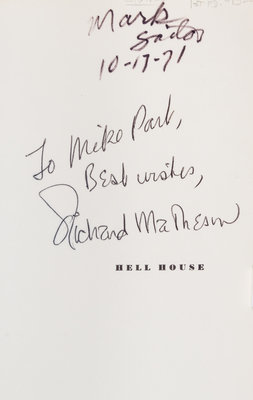 Mark
10-17-71
To Mike Part,
Best wishes,
Richard Matheson
HELL HOUSE